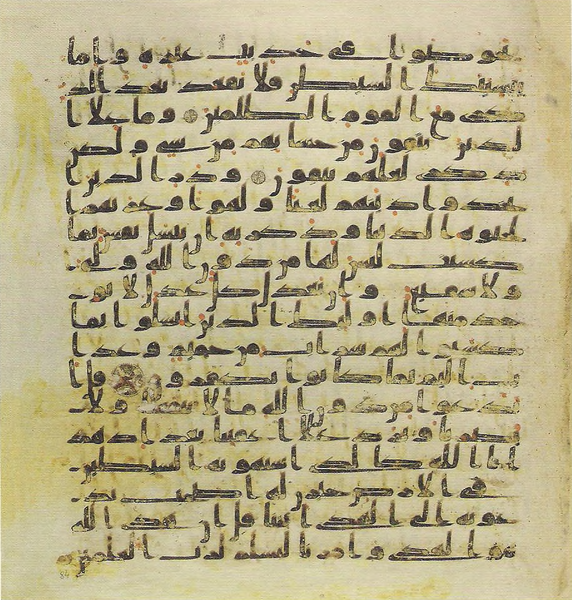 يخوضوا في حديث غيره واما
ينسينك الشيطن فلا تقعد بعد الذ
كرى مع القوم الظلمين وما على ا
لذين يتقون من حسابهم من شي ولكن
ذكرى لعلهم يتقون وذر الذين ا
تخذوا دينهم لعبا ولهوا وغرتهم ا
لحيوه الدنيا وذكر به ان تبسل نفس بما
كسبت ليس لها من دون الله ولي
ولا شفيع وان تعدل كل عدل لا يو
خذ منها اولئك الذين ابسلوا بما
كسبوا لهم شراب من حميم وعذا
ب اليم بما كانوا يكفرون قل ا
ندعوا من دون الله ما لا ينفعنا ولا
يضرنا ونرد على اعقبنا بعد اذ هد
ينا الله كالذي استهوته الشيطين
في الارض حيرن له اصحب يد
عونه الى الهدى ائتنا قل ان هدى الله
هو الهدى وامرنا لنسلم لرب العلمين
84